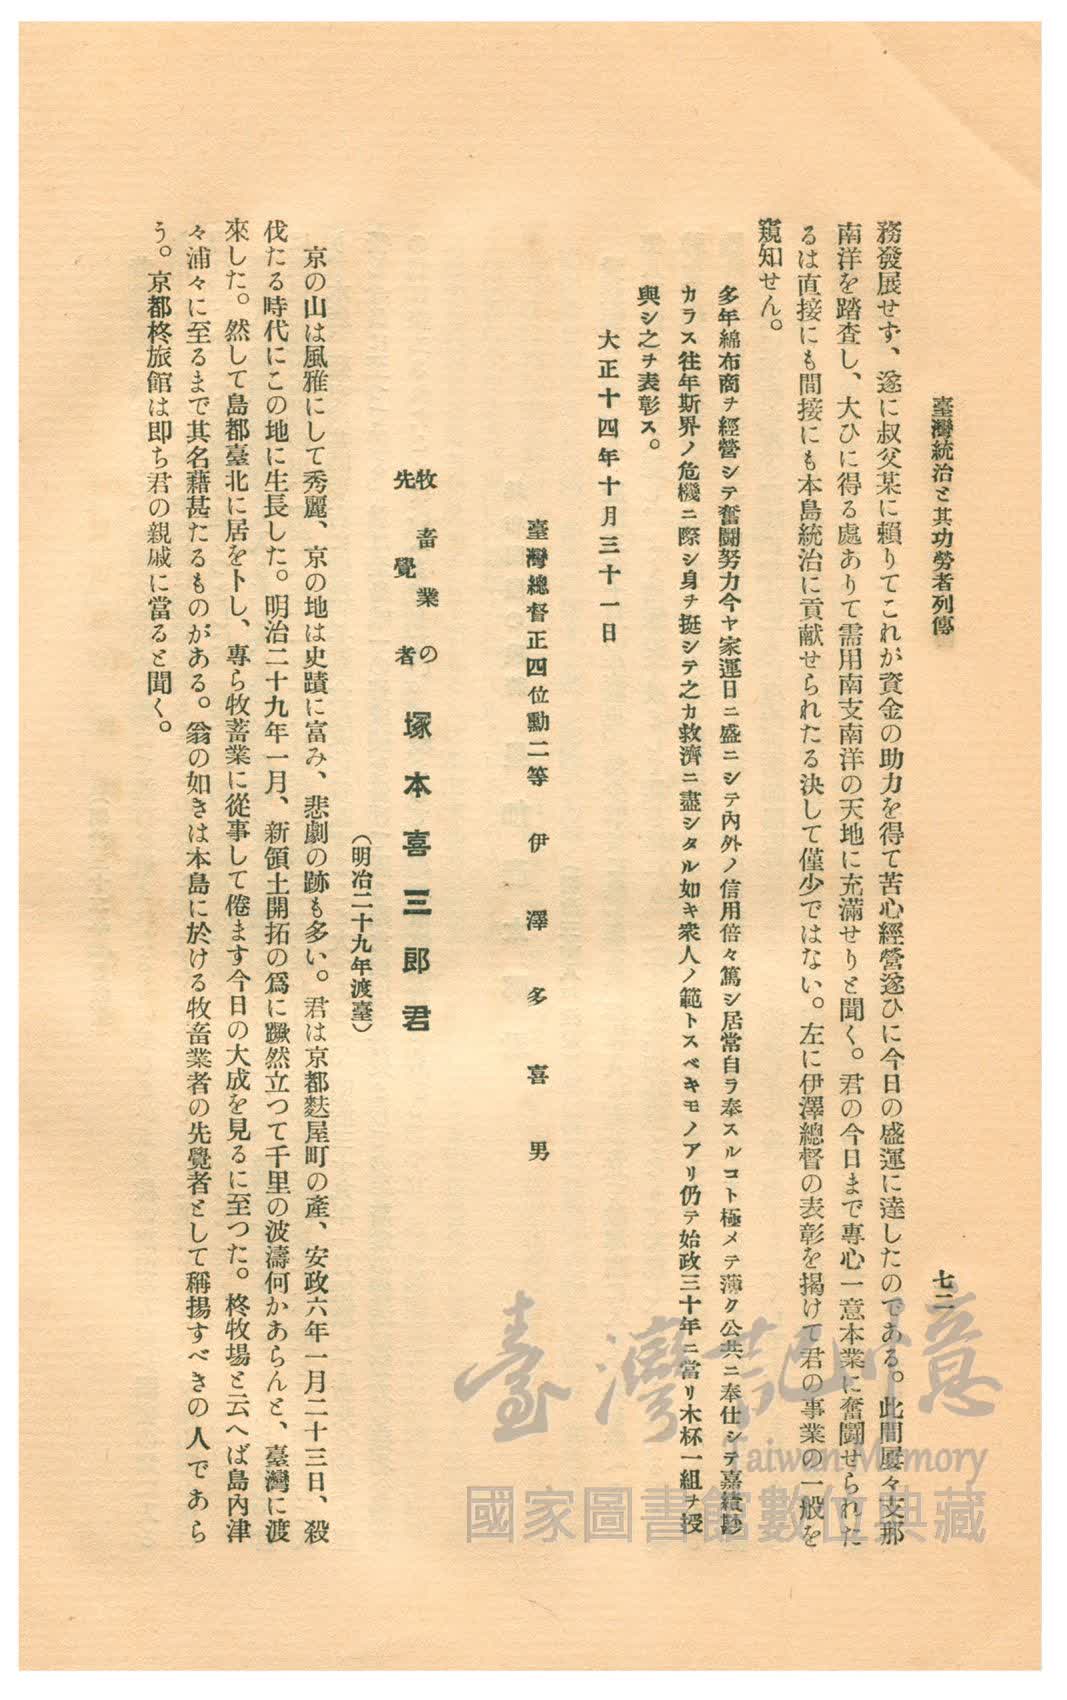 臺灣統治と其功勞者列傳
七二
務發展せず、遂に叔父某に賴りてこれが資金の助力を得て苦心經營遂ひに今日の盛運に達したのである。此間屢々支那
南洋を踏査し、大ひに得る處ありて需用南支南洋の天地に充滿せりと聞く。君の今日まで專心一意本業に奮鬪せられた
るは直接にも間接にも本島統治に貢献せられたる決して僅少ではない。左に伊澤總督の表彰を揭けて君の事業の一般を
窺知せん。
多年綿布商ヲ經營シテ奮鬪努力今ヤ家運日ニ盛ニシテ內外ノ信用倍々篤シ居常自ラ奉スルコト極メテ薄ク公共ニ奉仕シテ嘉績尠
カラス往年斯界ノ危機ニ際シ身ヲ挺シテ之カ救濟ニ盡シタル如キ衆人ノ範トスベキモノアリ仍テ始政三十年ニ當リ木杯一組ヲ授
與シ之ヲ表彰ス。
大正十四年十月三十一日
臺灣總督正四位勳二等 伊澤多喜男
牧畜業の
先覺者
塚本喜三郎君
(明治二十九年渡臺)
京の山は風雅にして秀麗、京の地は史蹟に富み、悲劇の跡も多い。君は京都麩屋町の產、安政六年一月二十三日、殺
伐たる時代にこの地に生長した。明治二十九年一月、新領土開拓の爲に蹶然立つて千里の波濤何かあらんと、臺灣に渡
來した。然して島都臺北に居をトし、專ら牧蓄業に從事して倦ます今日の大成を見るに至つた。柊牧場と云へば島內津
々浦々に至るまで其名藉甚たるものがある。翁の如きは本島に於ける牧畜業者の先覺者として稱揚すべきの人であら
う。京都柊旅館は即ち君の親戚に當ると聞く。
臺灣記憶
Taiwan Memory
國家圖書館數位典藏